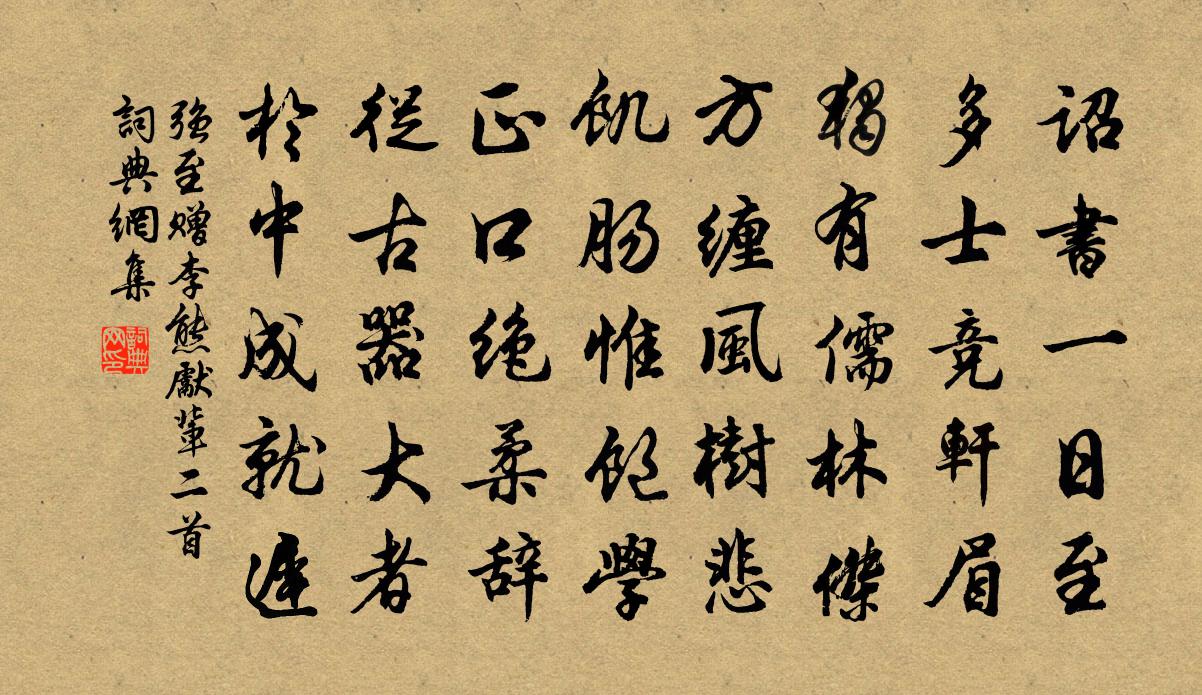 詔書一日至
多士竞軒眉
獨有儒林傑
方纏風樹悲
飢腸惟飽學
正口绝柔辞
從古器大者
於中成就遲
強至赠李熊獻輩二首
詞典網集
詞典网印